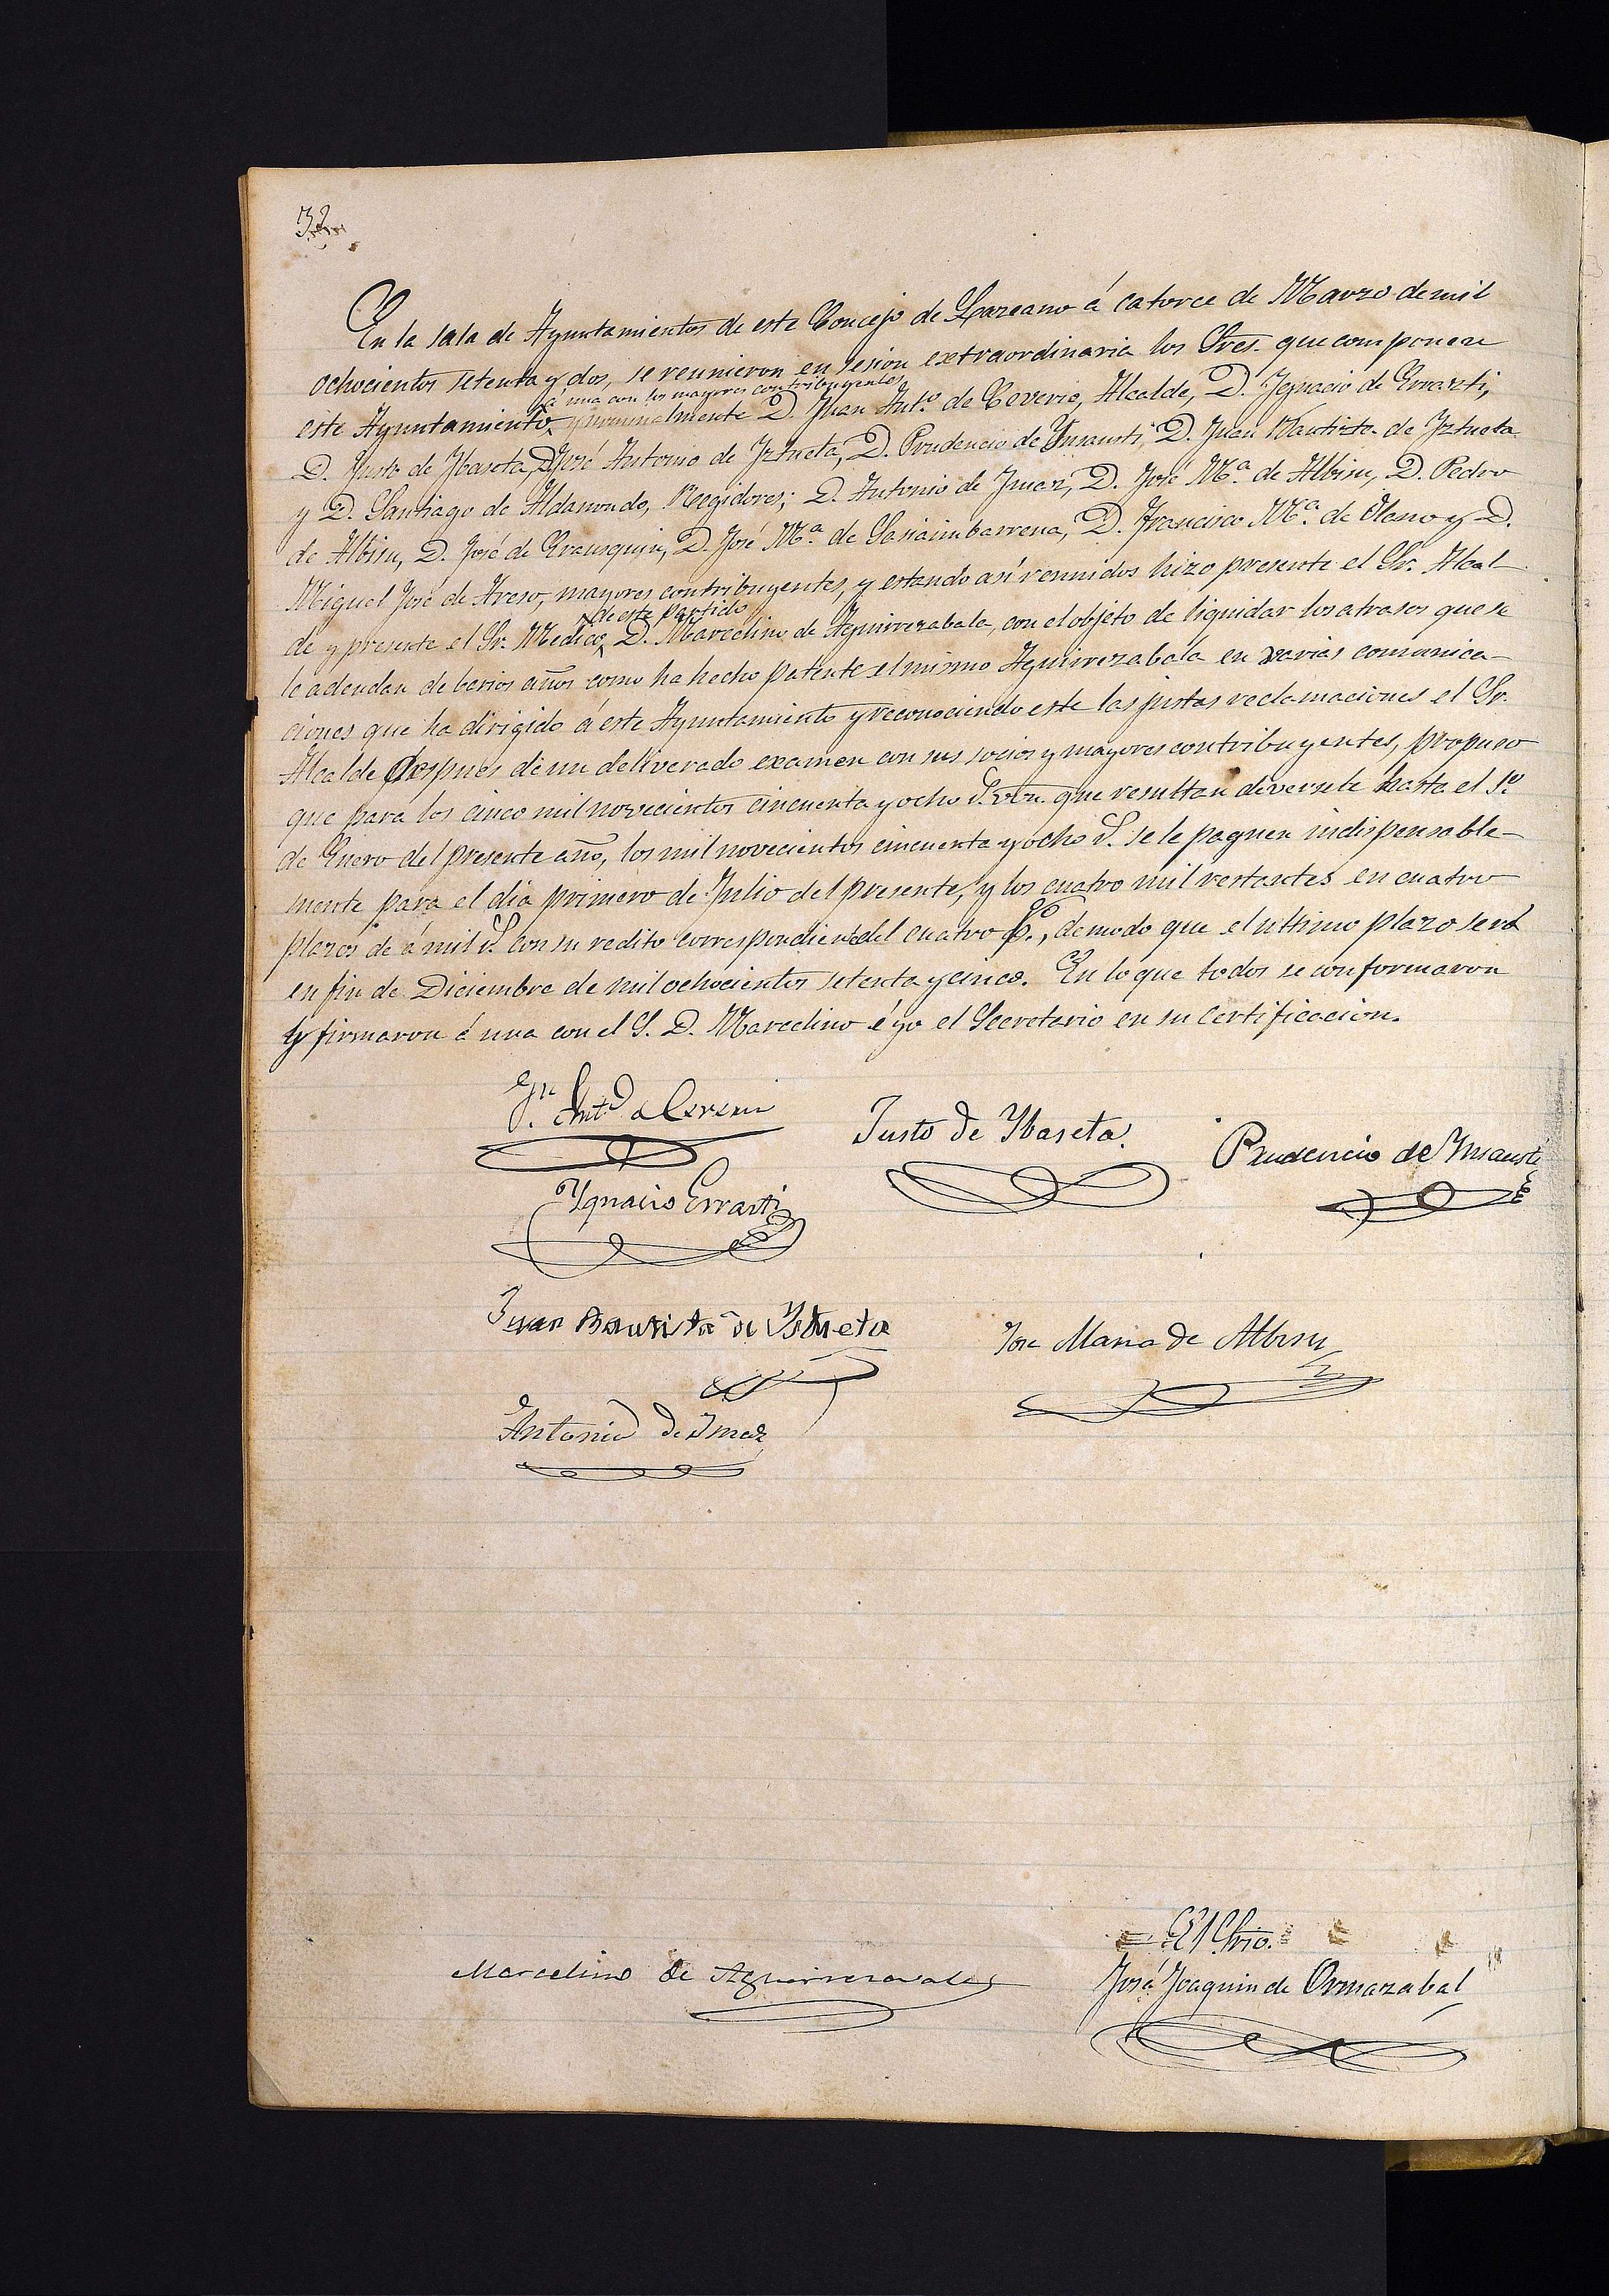 32
En la sala de Ayuntamientos de este Concejo de Lazcano á catorce de Marzo de mil
ochocientos setenta y dos, se reunieron en sesion extraordinaria los Sres. que componen
á una con los mayores contribuyentes
este Ayuntamiento, y nominalmente D. Juan Ant.º de Ceverio, Alcalde, D. Ygnacio de Errazti,
D. Justo de Ybaseta, D. José Antonio de Yztueta, D. Prudencio de Ynsausti, D. Juan Bautista de Yztueta
y D. Santiago de Aldamondo, Regidores; D. Antonio de Ymaz, D. José M.ª de Albisu, D. Pedro
de Albisu, D. José de Erausquin, D. José M.ª de Sasiaimbarrena, D. Francisco M.ª de Olano y D.
Miguel José de Areso, mayores contribuyentes, y estando así reunidos hizo presente el Sr. Alcal
de este partido
de y presente el Sr. Medico D. Marcelino de Aguirrezabala, con el objeto de liquidar los atrasos que se
le adeudan de barios años como ha hecho patente el mismo Aguirrezabala en varias comunica-
ciones que ha dirigido á este Ayuntamiento y reconociendo este las justas reclamaciones el Sr.
Alcalde despues de un deliverado examen con sus socios y mayores contribuyentes, propuso
que para los cinco mil novecientos cincuenta y ocho r.s von. que resultan deversele hasta el 1º
de Enero del presente año, los mil novecientos cincuenta y ocho r.s se le paguen indispensable-
mente para el dia primero de Julio del presente, y los cuatro mil restantes en cuatro
plazos de á mil r.s con su redito correspondiente del cuatro p.%, de modo que el ultimo plazo será
en fin de Diciembre de mil ochocientos setenta y cinco. En lo que todos se conformaron
y firmaron á una con el S. D. Marcelino é yo el Secretario en su certificacion.
Jn Antº de Ceverio
Justo de Ybaseta.
Prudencio de Ynsausti
Ygnacio Errasti
Juan Bautista de Ystueta
Jose Maria de Albisu
Antonio de Ymaz
El Srio.
Marcelino de Aguirrezavala
José Joaquin de Ormazabal